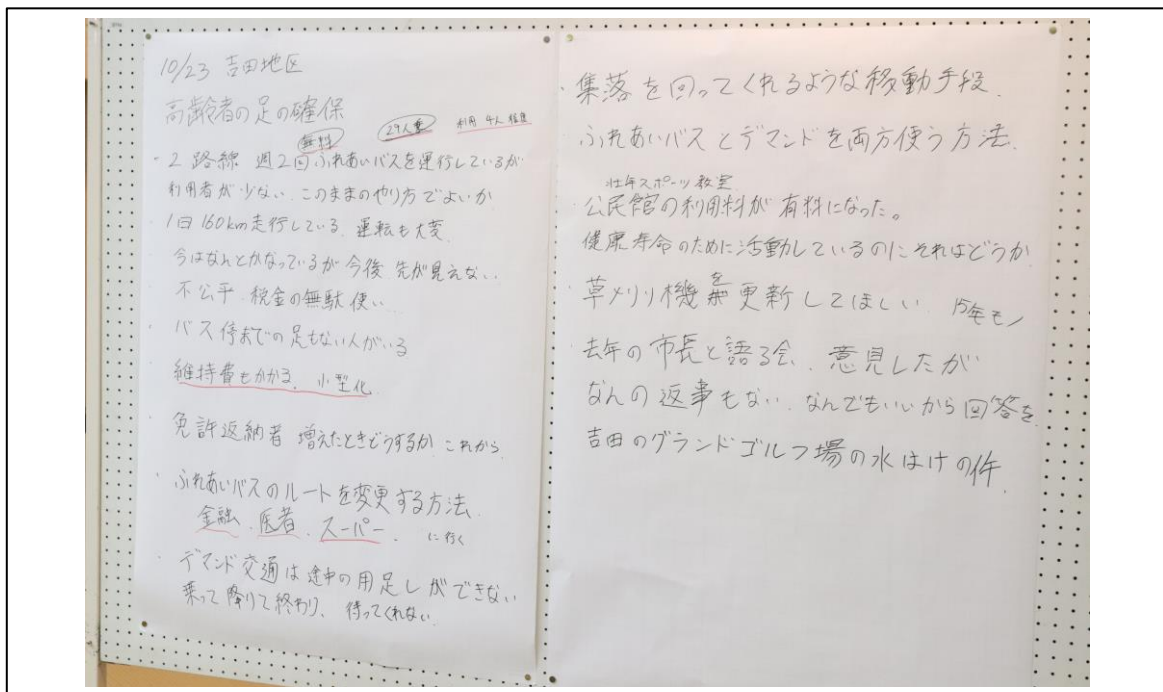 10/23 吉田地区
高齢者の足の確保
無料 29人乗 利用 4人程度
・2路線 週2回ふれあいバスを運行しているが
利用者が少ない このままのやり方でよいか
・1日160km走行している 運転も大変
今はなんとかなっているが 今後 先が見えない
不公平 税金の無駄使い
・バス停までの足もない人がいる
維持費もかかる. 小型化
・免許返納者 増えたときどうするか これから
・ふれあいバスのルートを変更する方法
金融. 医者. スーパー. に行く
・デマンド交通は途中の用足しができない
乗って降りて終わり、待ってくれない
・集落を回ってくれるような移動手段
ふれあいバスとデマンドを両方使う方法.
壮年スポーツ教室
公民館の利用料が有料になった。
健康寿命のために活動しているのにそれはどうか
・草メリリ機を更新してほしい 15年モノ
・去年の市長と語る会. 意見したが
なんの返事もない. なんでもいいから回答を
・吉田のグランドゴルフ場の水はけの件